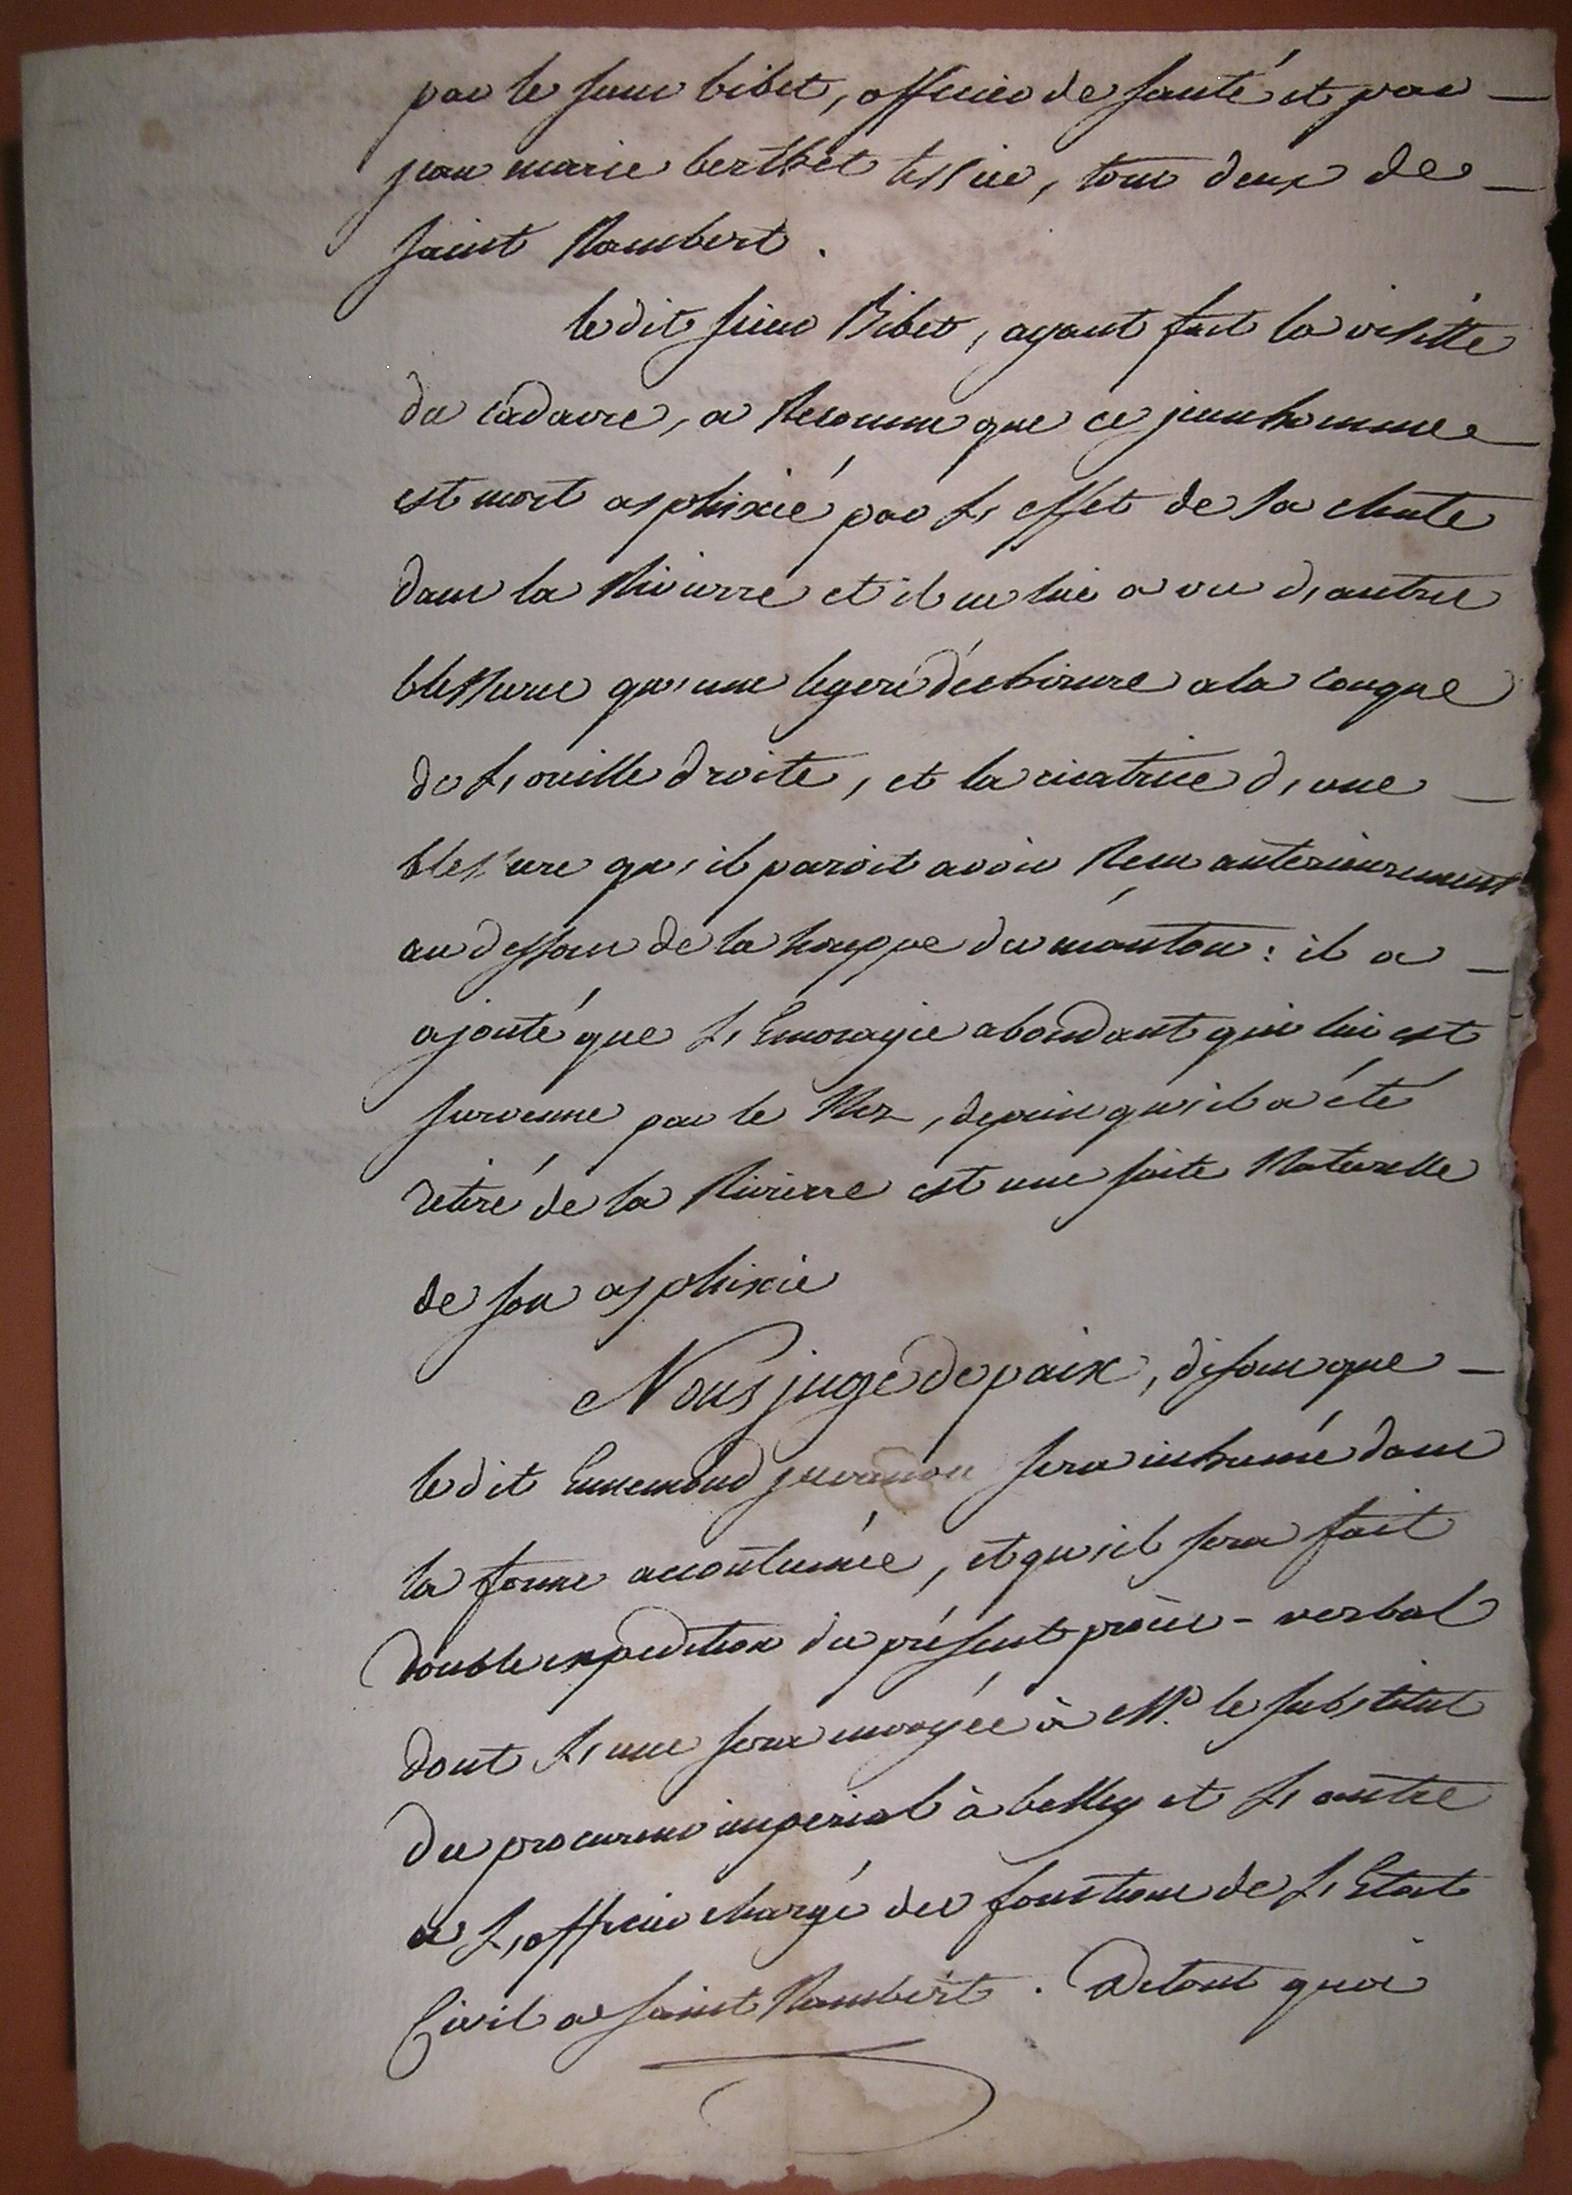 par le sieur bibet, officier de santé et par
jean marie berthet tessier, tous deux de
saint Rambert.
le dit sieur Bibet, ayant fait la visitte
du cadavre, a Reconnu que ce jeun homme
est mort asphixié par l'effet de sa chute
dans la Rivierre et il ne lui a vu d'autre
blessure qu'une legere déchirure a la conque
de l'oreille droite, et la cicatrice d'une
blessure qu'il paroit avoir Recu anterieurement
au dessous de la houppe du manton : il a
ajouté que l'Emoragie abondant qui lui est
survenue par le Nez, depuis qu'il a été
retiré de la Rivierre est une suite Naturelle
de son asphixie
Nous juge de paix, disons que
le dit Ennemond juvanon sera inhumé dans
la forme accoutumée, et qu'il sera fait
double expedition du présent procès-verbal
dont l'une sera envoyée à Mr. le substitut
du procureur imperial à belley et l'autre
a l'officier chargé des fonctions de l'Etat
Civil a saint Rambert. De tout quoi